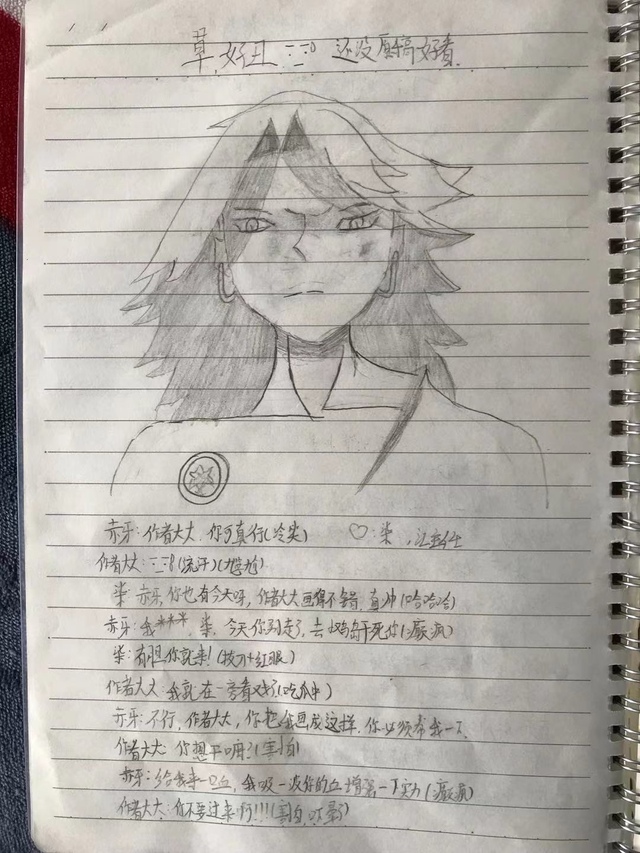 草,好丑 还没原稿好看
赤牙:作者大大,你可真行(冷笑) ♡:柒,
作者大大:(流汗)(尴尬)
柒:赤牙,你也有今天呀,作者大大画得不错,真帅(哈哈哈)
赤牙:我***,柒,今天你别走了,去鸡岛干死你(癫疯)
柒:有胆你就来!(拔刀+红眼)
作者大大:我就在一旁看戏(吃瓜中)
赤牙:不行,作者大大,你把我画成这样,你必须帮我一下
作者大大:你想干嘛?(害怕)
赤牙:给我来一口血,我吸一吸你的血增强一下实力(癫疯)
作者大大:你不要过来啊!!!(害怕,)